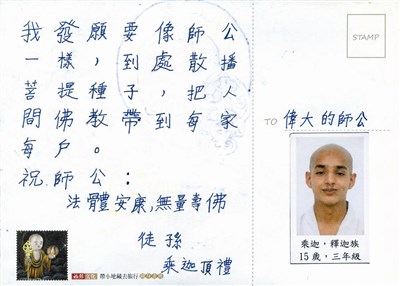 我發願要像師公
一樣，到處散播
菩提種子，把人
間佛教帶到每家
每戶。
祝師公：
法體安康，無量壽佛
徒孫
乘迦頂禮
帶小地藏去旅行
STAMP
TO 偉大的師公
乘迦，釋迦族
15歲，三年級